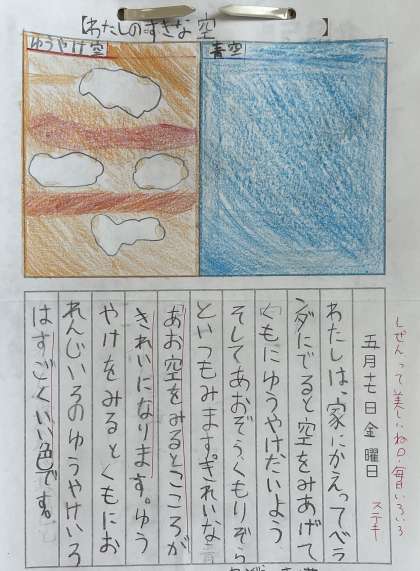 【わたしのすきな空】
ゆうやけ空
青空
しぜんって美しいね。毎日いろいろ
ステキ
五月十七日金曜日
わたしは、家にかえってベラ
ンダにでると空をみあげて
くもにゆうやけだいよう
そしてあおぞら、くもりぞら
といつもみます。きれいな
あお空をみるとこころが
きれいになります。ゆう
やけをみるとくもにお
れんじいろのゆうやけいろ
はすごくいい色です。